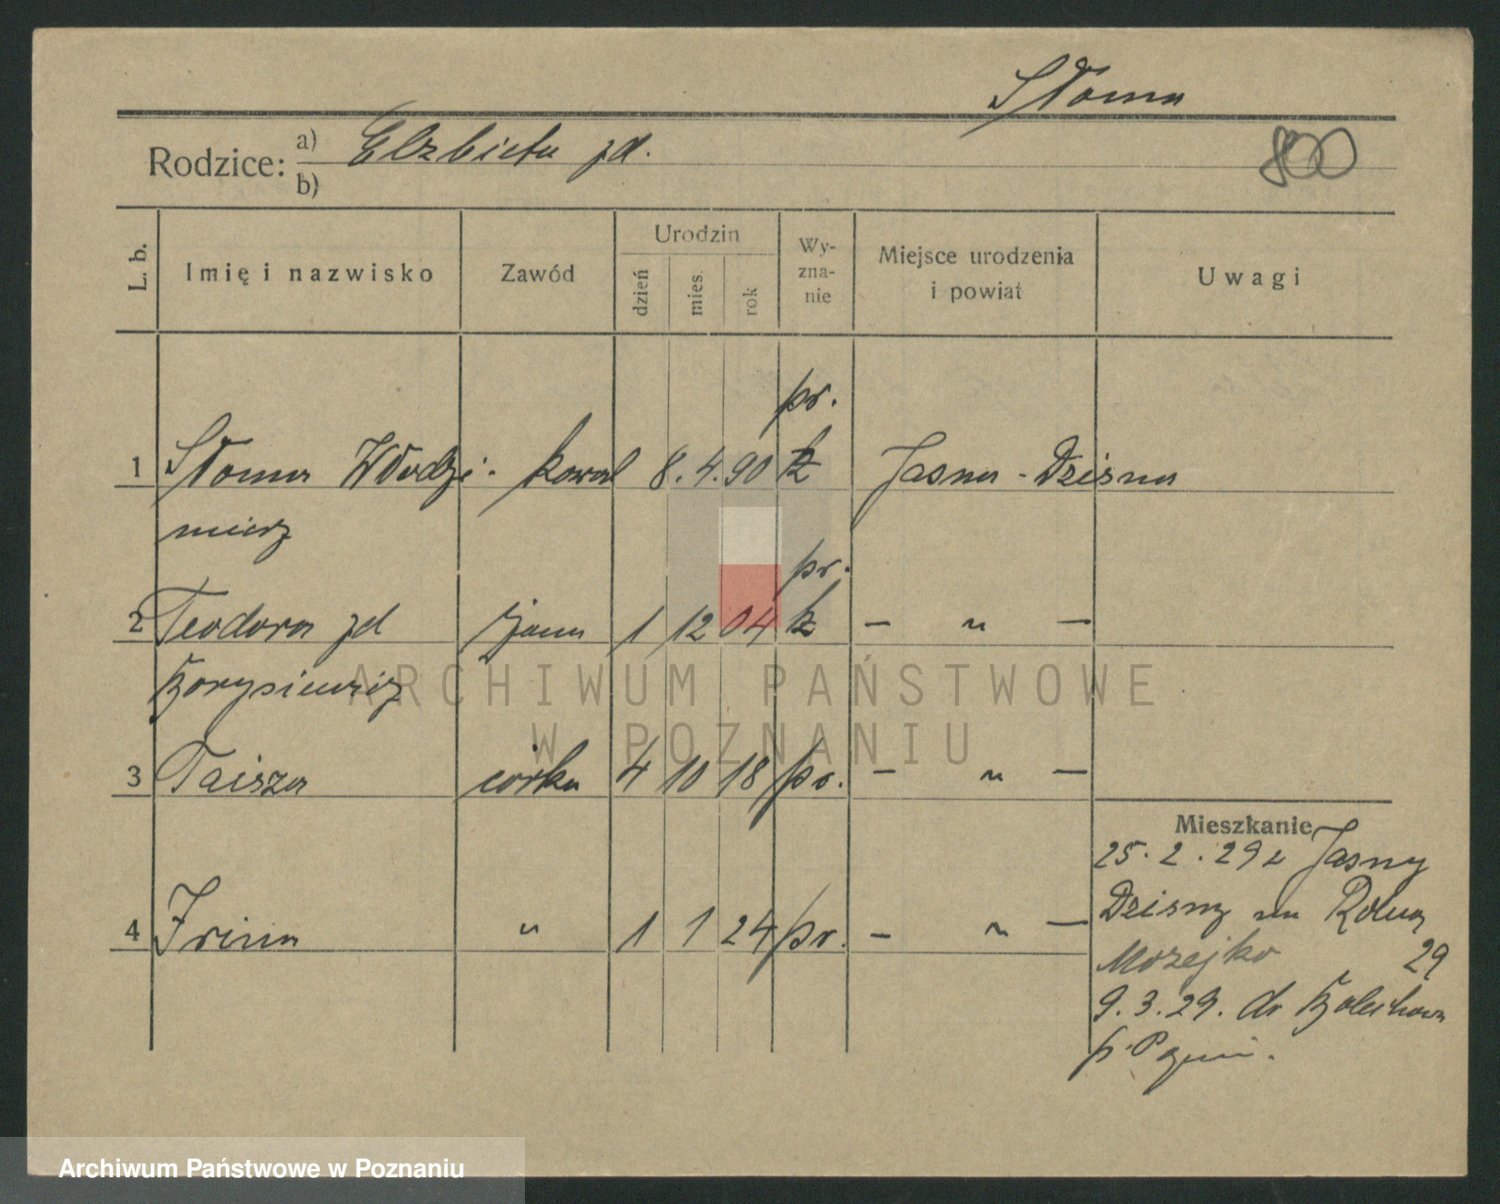 Słoma
800
Rodzice: a) Elzbieta zd.
b)
L. b. Imię i nazwisko Zawód Urodzin dzień mies. rok Wy-zna-nie Miejsce urodzenia i powiat Uwagi
pr.
1 Słoma Włodzi- kowal 8. 4. 90 k Jasna - Dzisna
mierz
pr.
2 Teodora zd żona 1 12 04 k — " —
Borysiewicz
3 Taisza córka 4 10 18 pr. — " —
Mieszkanie
25. 2. 29 z Jasny
Dzisny na Rolna
4 Irina " 1 1 24 pr. — " —
Mozejko 29
9. 3. 29. do
p.
ARCHIWUM PAŃSTWOWE
W POZNANIU
Archiwum Państwowe w Poznaniu